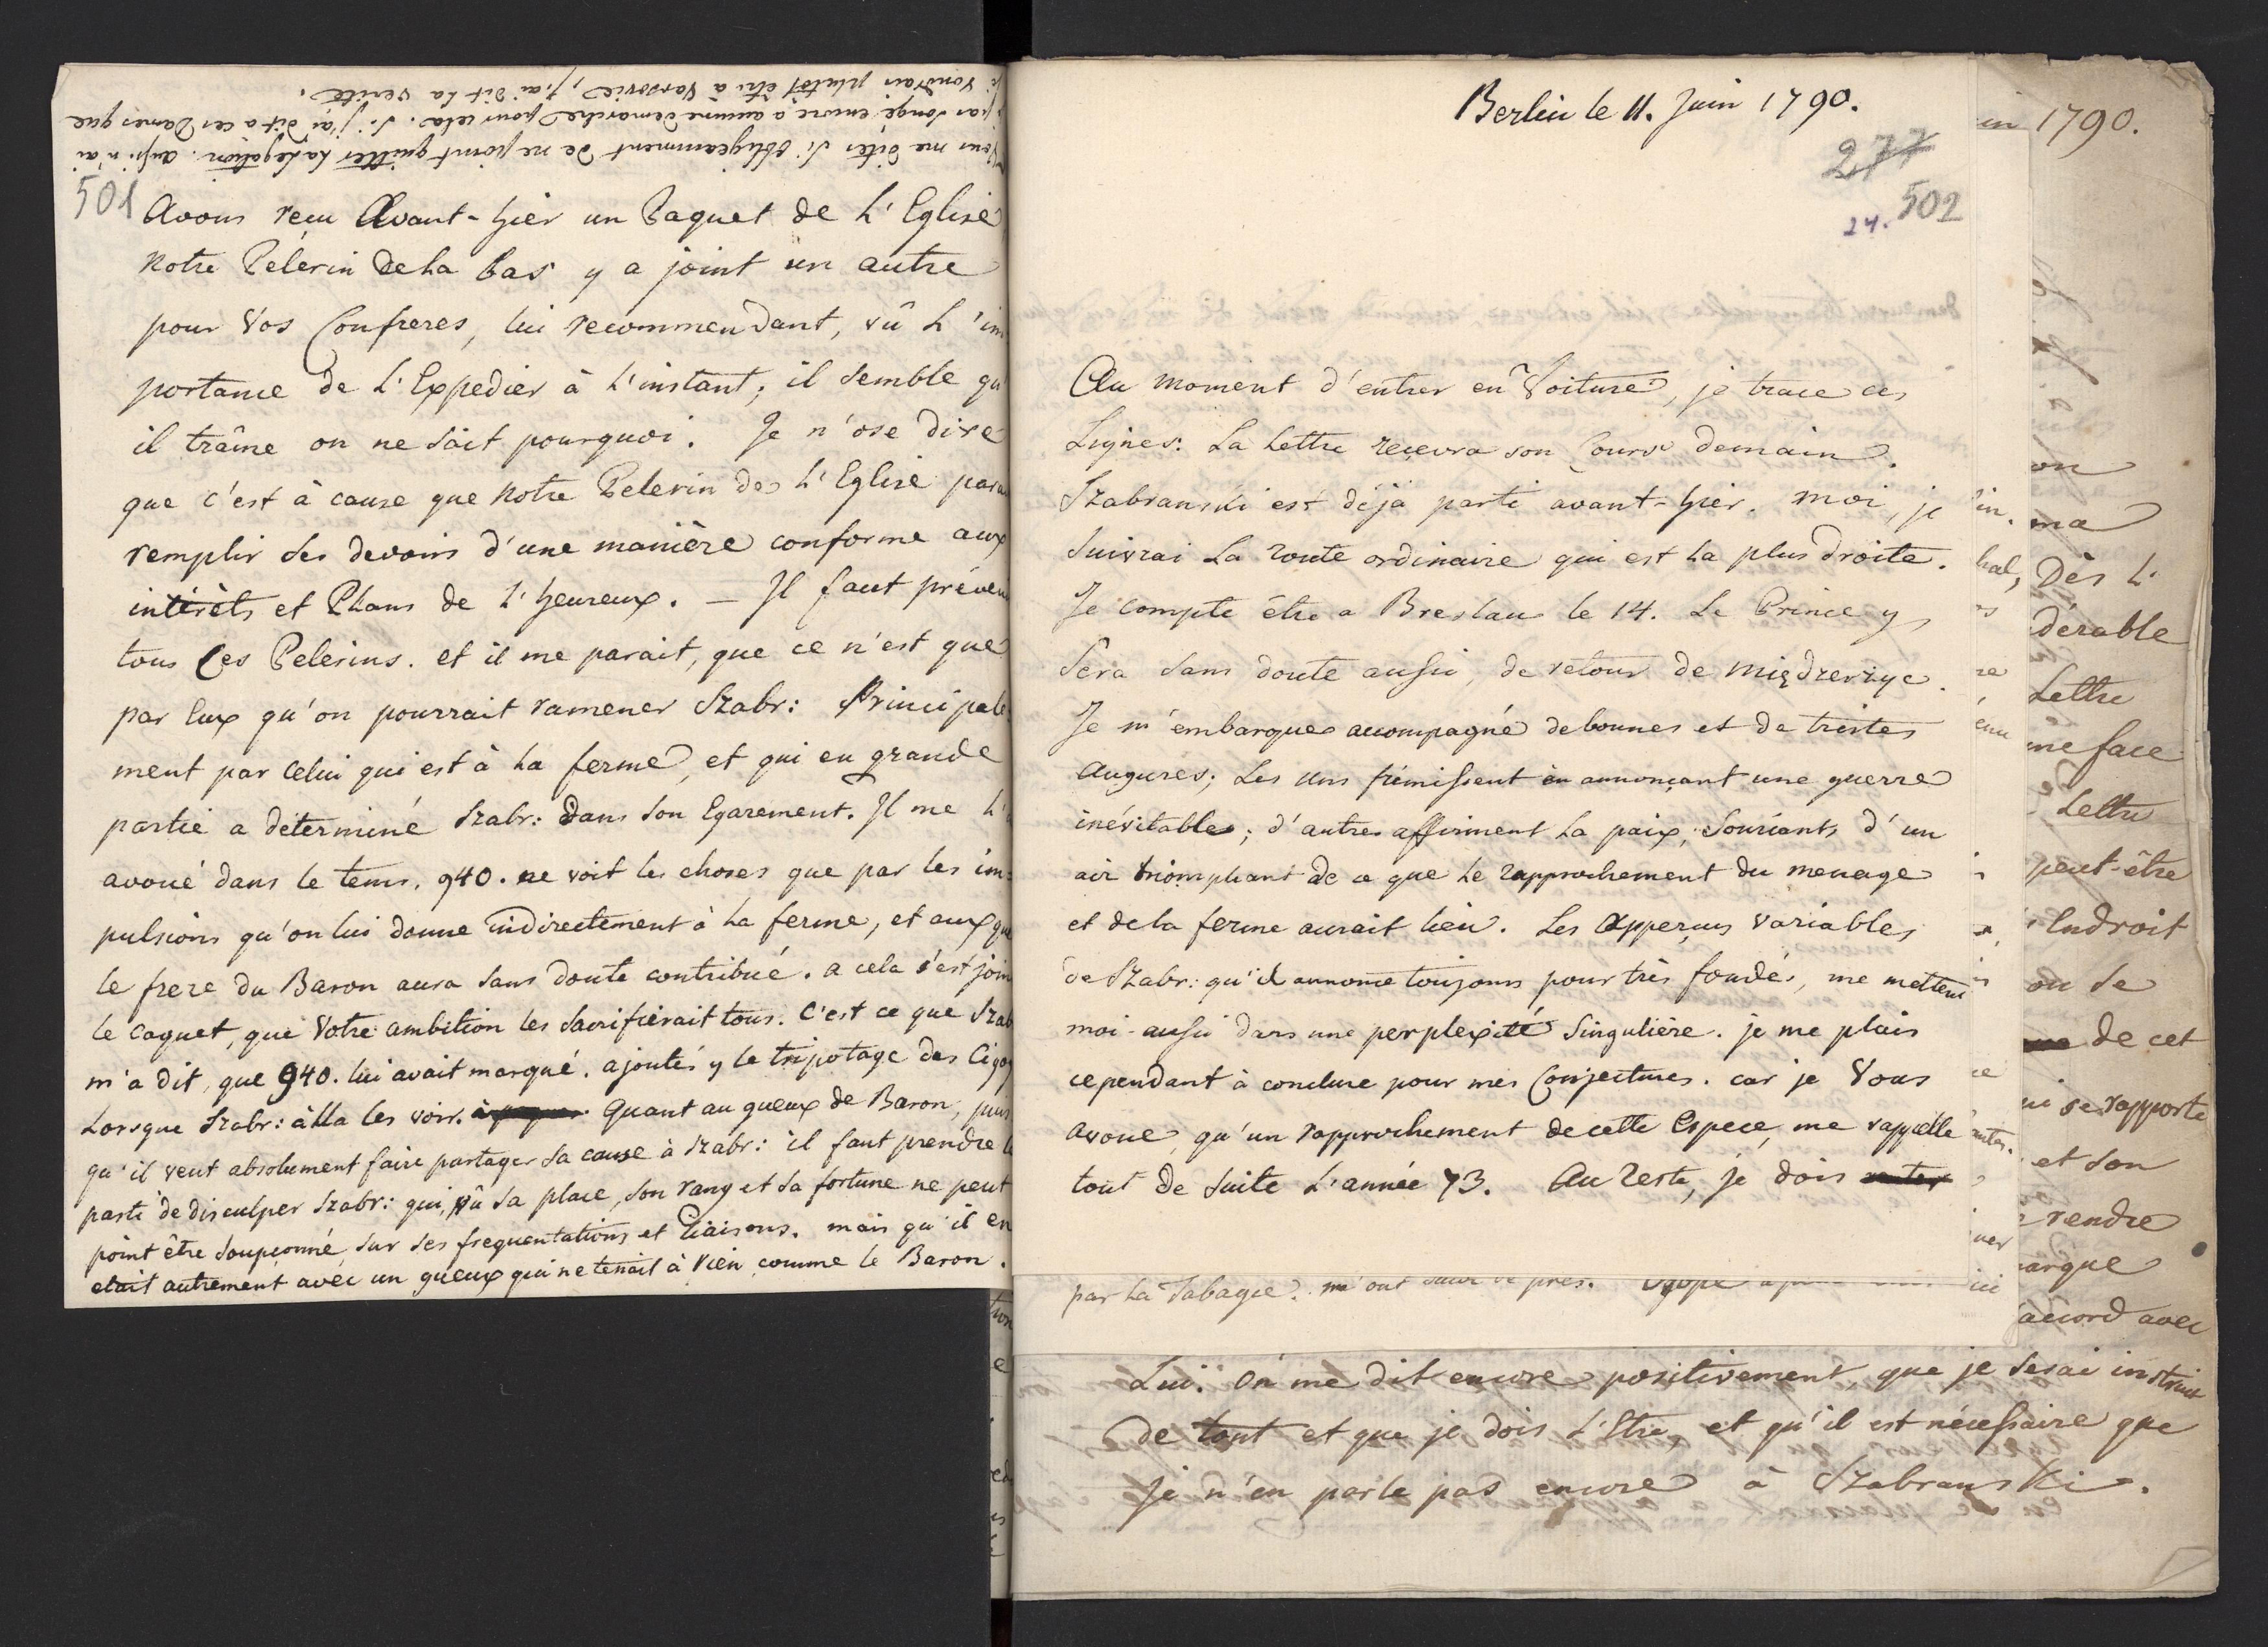 Vous me dites si obligeamment de ne point quitter la Legation. aussi n'ai
pas songé encore a aucune demarche pour cela. Si j'ai dit a ces Dames que
je voudrais plutôt être à Varsovie, j'ai dit la verité.
501
Avons reçu Avant-hier un Paquet de L'Eglise
Notre Pelerin de La bas y a joint un autre
pour Vos Confreres, lui recommendant, vû L'im
portance de L'Expedier à L'instant; il semble qu
il traîne on ne sait pourquoi. Je n'ose dire
que c'est à cause que Notre Pelerin de L'Eglise para
remplir ses devoirs d'une manière conforme aux
intérêts et Plans de L'heureux. — Il faut préven
tous Ces Pelerins. et il me parait, que ce n'est que
par Eux qu'on pourrait ramener Szabr: Principale
ment par Celui qui est à La ferme, et qui en grande
partie a déterminé Szabr: Dans son Egarement. Il me L'
avoué dans le tems. 940. ne voit les choses que par les im:
pulsions qu'on lui donne indirectement à La ferme, et aux que
le frere du Baron aura sans doute contribué. a cela s'est join
le Caquet, que Votre ambition les sacrifierait tous. C'est ce que Szab
m'a dit, que 940. lui avait marqué. ajoutés y le tripotage des Cigog
Lorsque Szabr: alla les voir. Quant au gueux de Baron, puis
qu'il veut absolument faire partager sa cause à Szabr: il faut prendre le
parti de disculper Szabr: qui, vû sa place, son rang et sa fortune ne peut
point être soupçonné sur ses frequentations et Liaisons. mais qu'il en
etait autrement avec un gueux qui ne tenait à rien comme le Baron.
Berlin le 11. Juin 1790.
277
502
24.
Au moment d'entrer en Voiture, je trace ces
Lignes: La Lettre reçevra son Cours demain.
Szabranski est déjà parti avant-hier. Moi, je
suivrai La route ordinaire qui est la plus droite.
Je compte être a Breslau le 14. Le Prince y
sera sans doute aussi, de retour de Międzerzyc.
Je m'embarque accompagné de bonnes et de tristes
augures; Les uns frémissent en annonçant une guerre
inévitable; d'autres affirment La paix, souriants d'un
air triomphant de ce que Le rapprochement du menage
et de la ferme aurait lieu. Les Apperçus variables
de Szabr: qu'il annonce toujours pour très fondés, me mettent
moi-aussi dans une perplexité singulière. je me plais
cependant à conclure pour mes Conjectures. car je Vous
avoue, qu'un rapprochement de cette Espece, me rappelle
tout de suite L'année 73. Au reste, je dois
par La Tabagie. m'ont
in 1790.
on
ma
Dès L'
dérable
Lettre
me face
Lettre
peut-être
Endroit
ou se
de cet
ui se rapporte
et son
rendre
arque
accord avec
Lui. On me dit encore positivement, que je serai instruit
de tout et que je dois L'Etre, et qu'il est nécessaire que
je n'en parle pas encore à Szabranski.